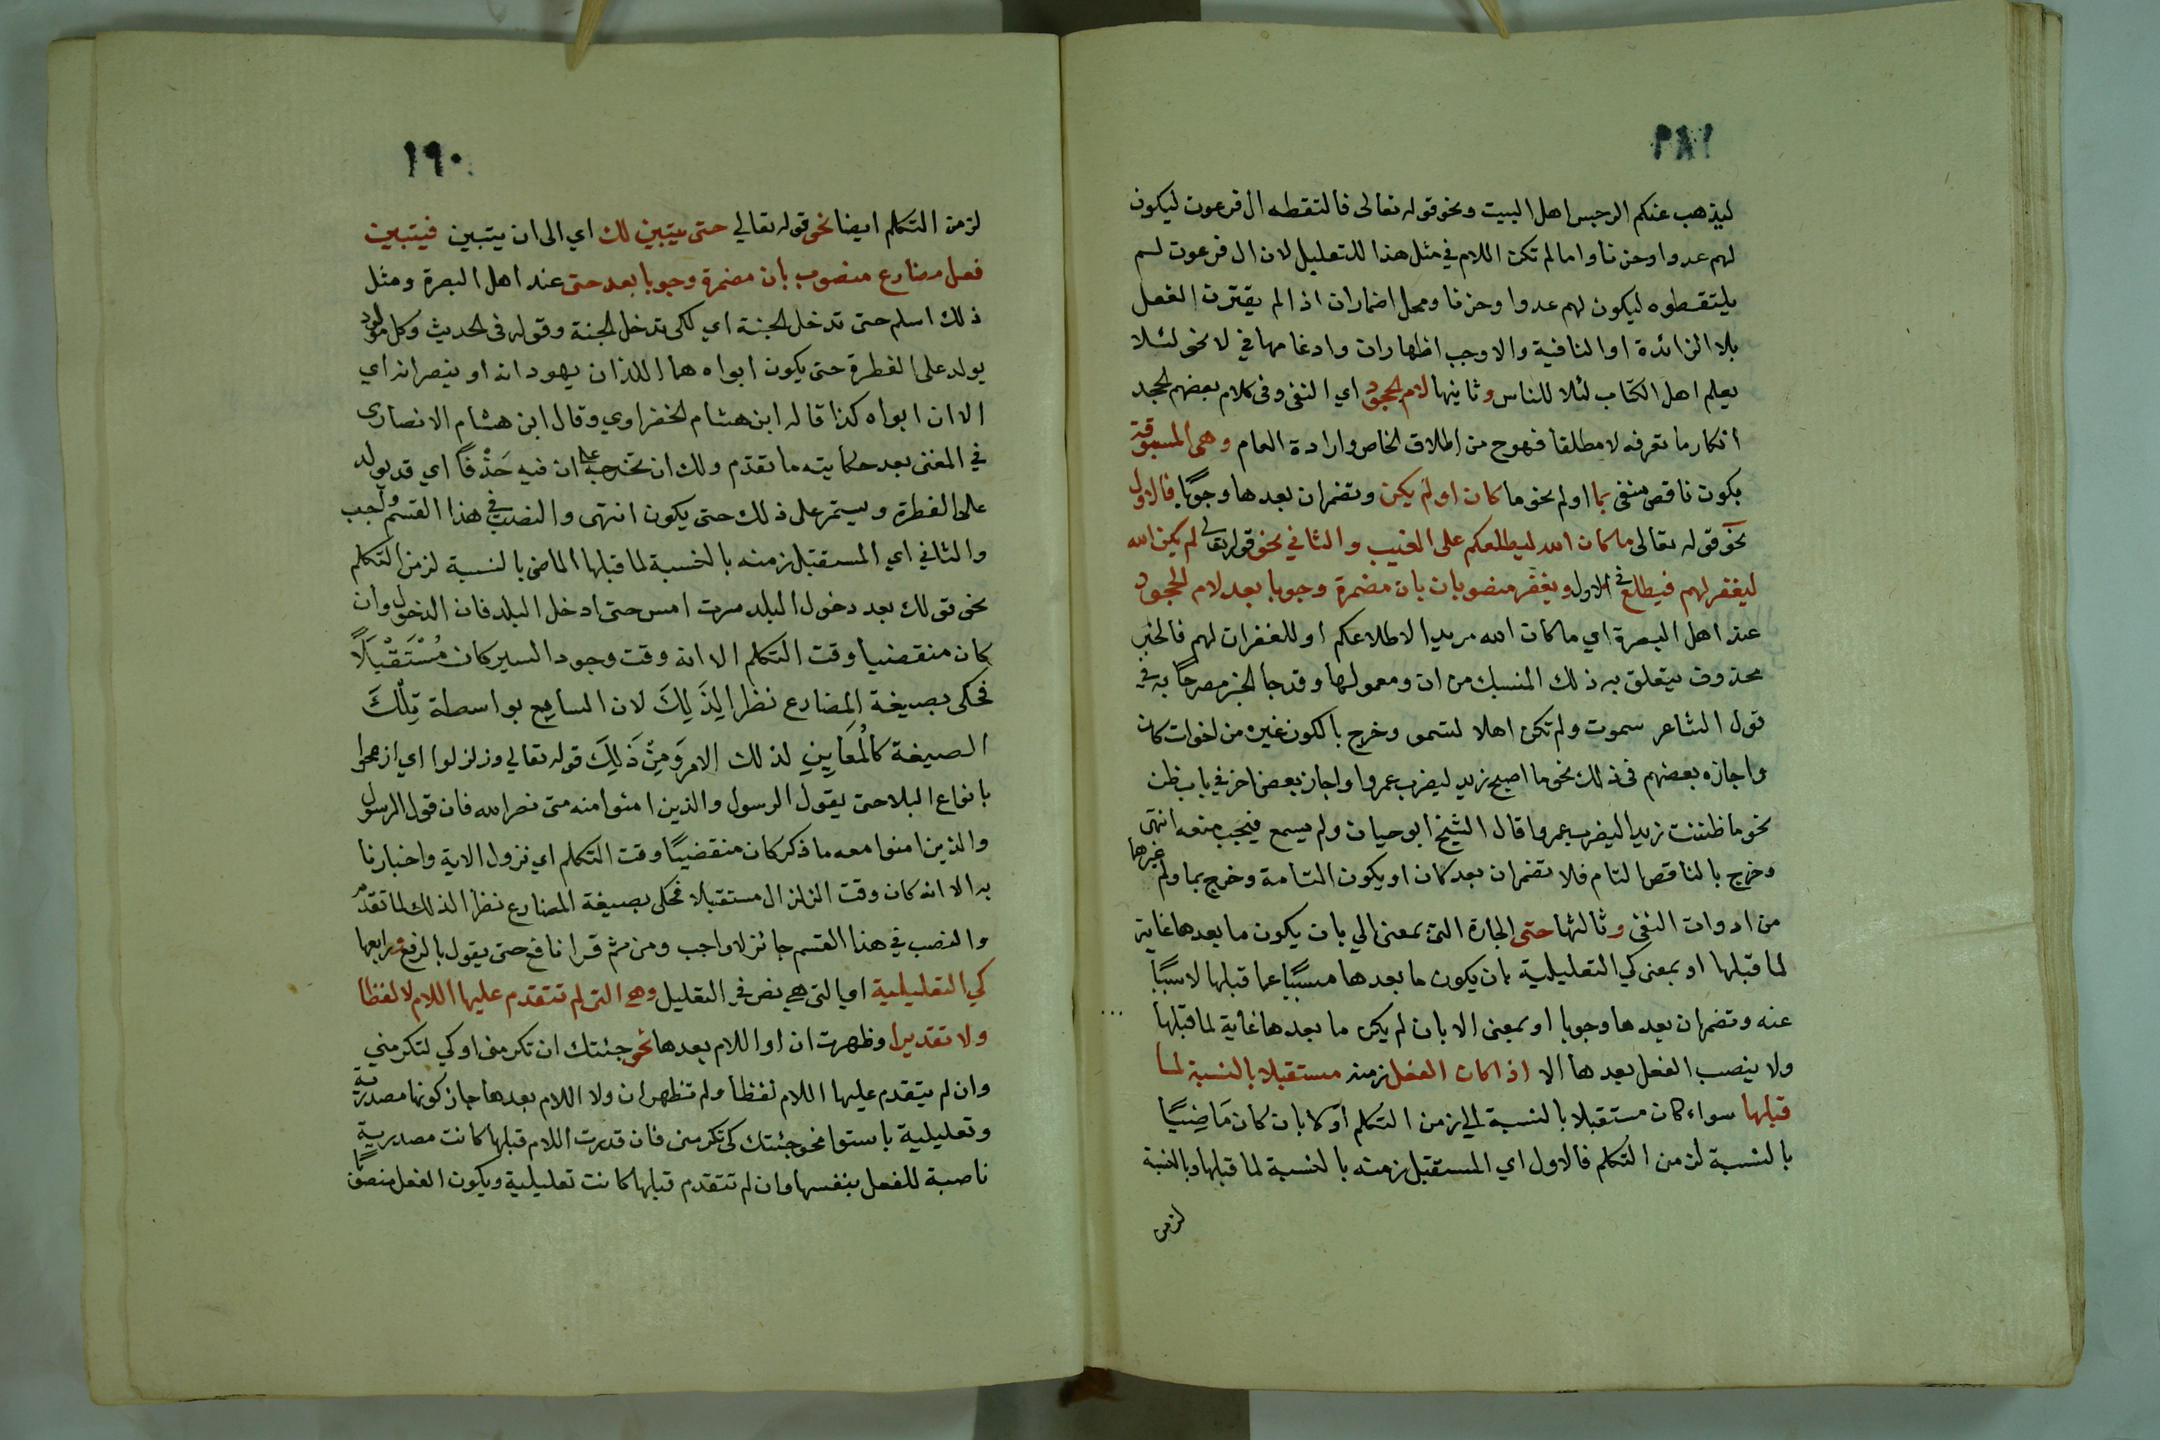 ٢٨١
ليذهب عنكم الرجس اهل البيت ونحو قوله تعالى فالتقطه ال فرعون ليكون
لهم عدوا وحزنا وامالم تكن اللام في مثل هذا للتعليل لان ال فرعون لم
يلتقطوه ليكون لهم عدوا وحزنا ومحل اضماران اذا لم يقترن الفعل
بلا الزائدة او النافية والا وجب اظهاران وادغامها في لا نحو لئلا
يعلم اهل الكتاب لئلا للناس وثانيها لام الجحود اي النفي وفي كلام بعضهم الجحد
انكار ما تعرفه لا مطلقا فهوح من اطلاق الخاص وارادة العام وهي المسبوقة
بكون ناقص منفى بما او لم نحو ما كان او لم يكن وتضمران بعدها وجوبا فالاول
نحو قوله تعالى ما كان الله ليطلعكم على الغيب والثاني نحو قوله تعالى لم يكن الله
ليغفر لهم فيطلع في الاول ويغفر منصوبان بان مضمرة وجوبا بعد لام الجحود
عند اهل البصرة اي ما كان الله مريدا لاطلاعكم او للغفران لهم فالخبر
محذوف يتعلق به ذلك المنسبك من ان ومعمولها وقد جا الخبر مصرحا به في
قول الشاعر سموت ولم تكن اهلا لتسمو وخرج بالكون غيره من اخوات كان
واجازه بعضهم في ذلك نحو ما اصبح زيد ليضرب عمروا واجاز بعض اخر في باب ظن
نحو ما ظننت زيدا ليضرب عمروا قال الشيخ ابو حيان ولم يسمع فيجب منعه انتهى
وخرج بالناقص التام فلا تضمران بعد كان او يكون التامة وخرج بما ولم غيرها
من ادوات النفي وثالثها حتى الجارة التي بمعنى الي بان يكون ما بعدها غاية
لما قبلها او بمعنى كي التعليلية بان يكون ما بعدها مسببا عما قبلها لا سببا
عنه وتضمران بعدها وجوبا او بمعنى الا بان لم يكن ما بعدها غاية لما قبلها
ولا ينصب الفعل بعدها الا اذا كان الفعل زمنه مستقبلا بالنسبة لما
قبلها سواء كان مستقبلا بالنسبة الي زمن التكلم أولا بان كان مَاضِيًا
بالنسبة لزمن التكلم فالاول اي المستقبل زمنه بالنسبة لما قبلها وبالنسبة
لزمن
١٩٠
لزمن التكلم ايضا نحو قوله تعالي حتى يتبين لك اي الى ان يتبين فيتبين
فعل مضارع منصوب بان مضمرة وجوبا بعد حتى عند اهل البصرة ومثل
ذلك اسلم حتى تدخل الجنة اي لكى تدخل الجنة وقوله في الحديث وكل مولود
يولد على الفطرة حتى يكون ابواه هما اللذان يهودانه او ينصرانه اي
الا ان ابواه كذا قاله ابن هشام الخضراوي وقال ابن هشام الانصاري
في المغنى بعد حكايته ما تقدم ولك ان تخرجه على ان فيه حَذْفًا اي قد يولد
على الفطرة ويستمر على ذلك حتى يكون انتهى والنصب في هذا القسم واجب
والثاني اي المستقبل زمنه بالنسبة لما قبلها الماضي بالنسبة لزمن التكلم
نحو قولك بعد دخول البلد سرت امس حتى ادخل البلد فان الدخول وان
كان منقضيا وقت التكلم الا انه وقت وجود السير كان مُسْتَقْبَلًا
فحكى بصيغة المضارع نظرا لِذَلِكَ لان السامِع بواسطة تِلْكَ
الصيغة كالْمُعَايِنِ لذلك الامر وَمِنْ ذَلِكَ قوله تعالي وزلزلوا اي ازعجوا
بانواع البلا حتى يقول الرسول والذين امنوا منه متى نصر الله فان قول الرسول
والذين امنوا معه ما ذكر كان منقضيًا وقت التكلم اي نزول الاية واخبارنا
به الا انه كان وقت الزلزال مستقبلا فحكى بصيغة المضارع نظرا لذلك لما تقدم
والنصب في هذا القسم جائز لا واجب ومن ثم قرا نافع حتى يقول بالرفع ورابعها
كي التعليلية اي التي هي نص في التعليل وهي التى لم تتقدم عليها اللام لا لفظا
ولا تقديرا وظهرت ان او اللام بعدها نحو جئتك ان تكرمنى او كي لتكرمني
وان لم يتقدم عليها اللام لفظا ولم تظهر ان ولا اللام بعدها جاز كونها مصدرية
وتعليلية باستوا نحو جئتك كى تكرمنى فان قدرت اللام قبلها كانت مصدرية
ناصبة للفعل بنفسها وان لم تتقدم قبلها كانت تعليلية ويكون الفعل منصوبا